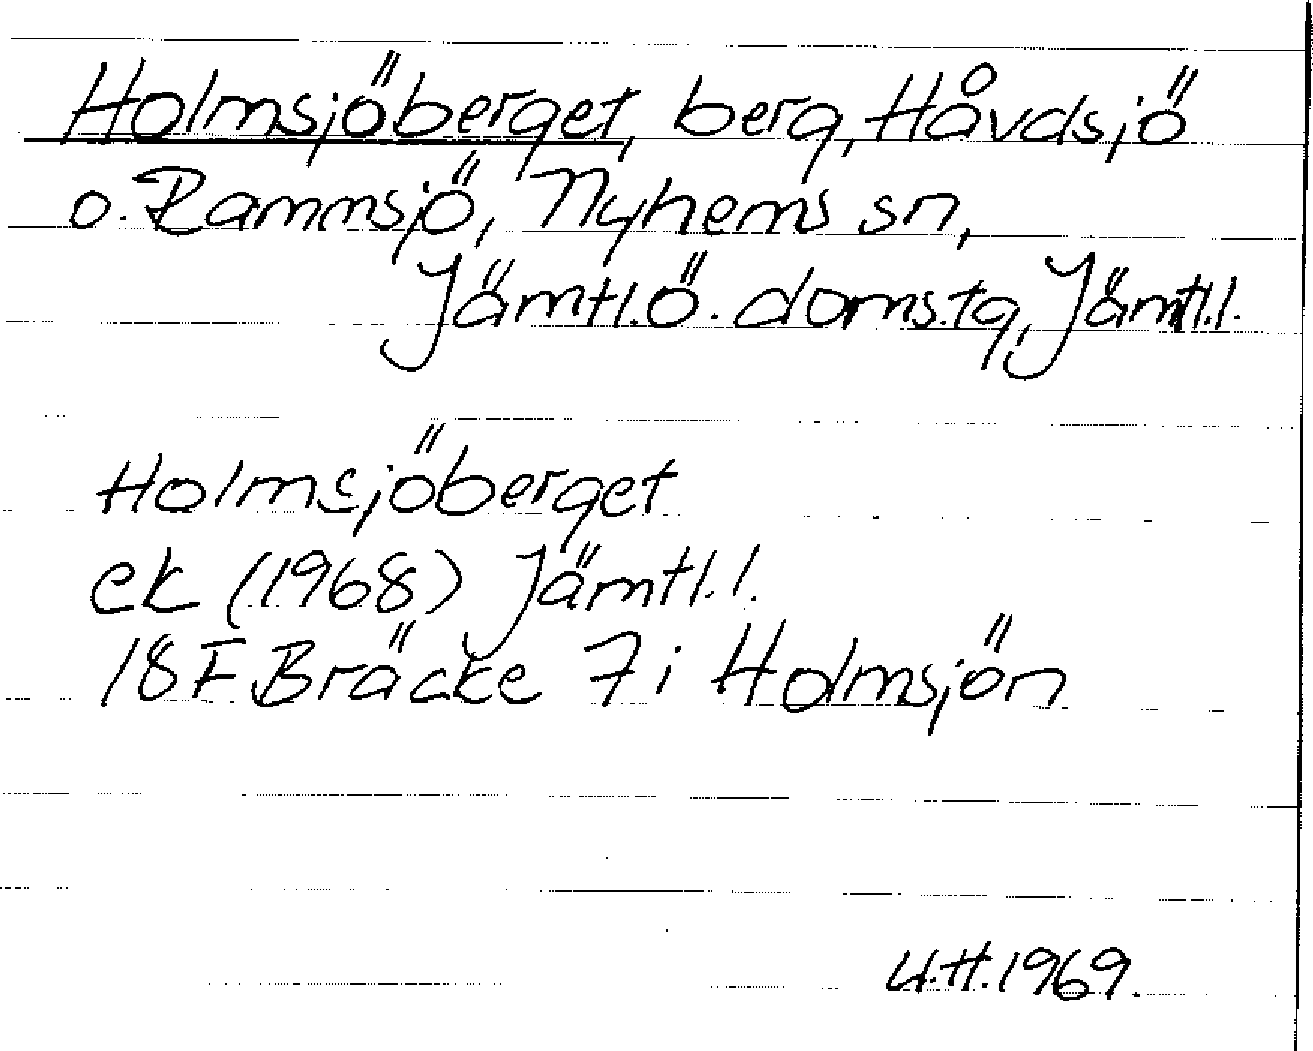 Holmsjöberget, berg, Håvdsjö
o. Rammsjö, Nyhems sn,
Jämtl.ö. doms.tg, Jämtl.l.
Holmsjöberget
ek (1968) Jämtl.l.
18F Bräcke 7i Holmsjön
U.H. 1969.